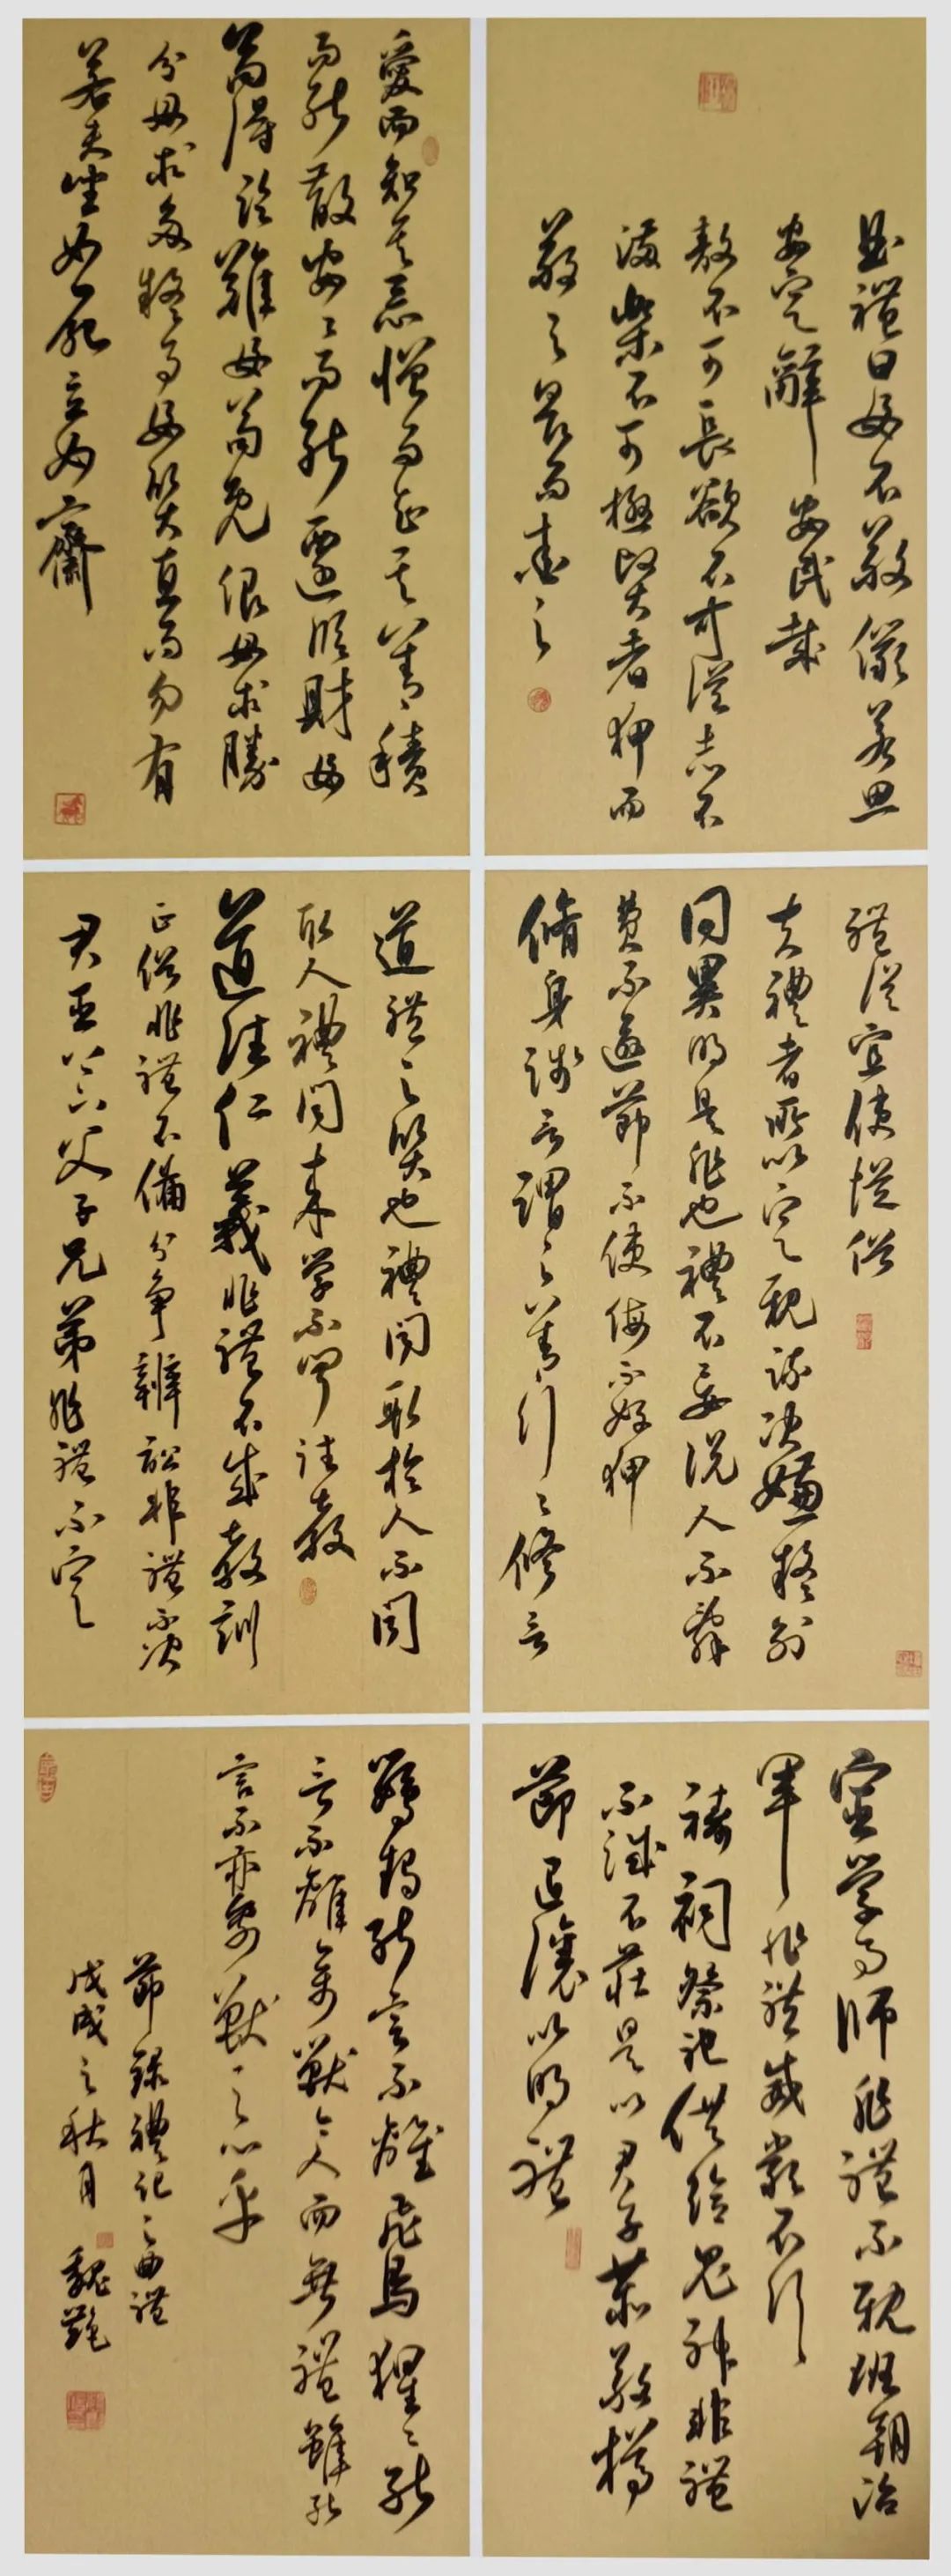 曲禮曰毋不敬儼若思
安定辭 安民哉
敖不可長欲不可從志不
滿樂不可極賢者狎而
敬之畏而愛之
愛而知其惡憎而知其善積
而能散安〻而能遷臨財毋
苟得臨難毋苟免很毋求勝
分毋求多疑事毋質直而勿有
若夫坐如尸立如齊
禮從宜使從俗
夫禮者所以定親疏決嫌疑別
同異明是非也禮不妄說人不辭
費不逾節不侵侮不好狎
脩身踐言謂之善行〻修言
道禮之質也禮聞取於人不聞
取人禮聞來學不聞往教
道德仁義非禮不成教訓
正俗非禮不備分爭辨訟非禮不決
君臣上下父子兄弟非禮不定
宦學事師非禮不親班朝治
軍非禮威嚴不行
禱祠祭祀供給鬼神非禮
不誠不莊是以君子恭敬撙
節退讓以明禮
鸚鵡能言不離飛鳥猩〻能
言不離禽獸今人而無禮雖能
言不亦禽獸之心乎
節錄禮記之曲禮
戊戌之秋月 魏艷